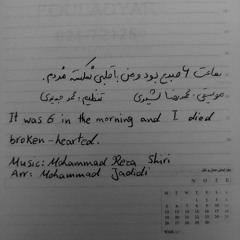 ساعت ۶ صبح بود و من با قلبی شکسته مُردم.
موسیقی: محمدرضا شیری تنظیم: محمد جدیدی
It was 6 in the morning and I died
broken-hearted.
Music: Mohammad Reza Shiri
Arr: Mohammad Jadidi